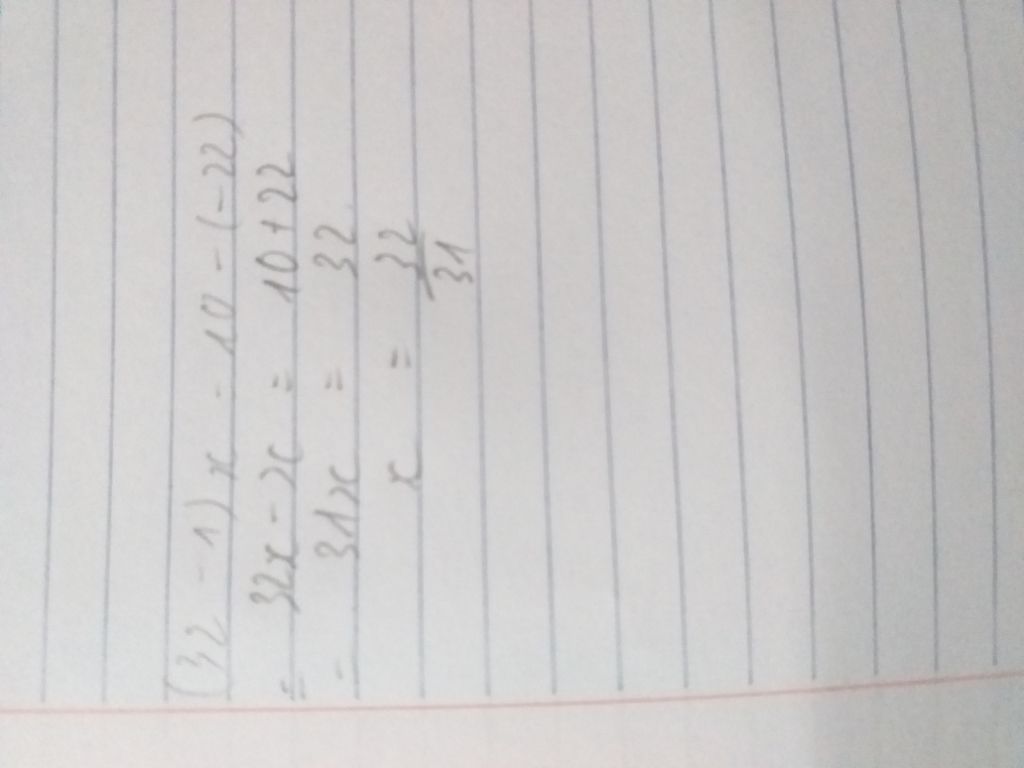 (32 - 1) x - 10 - (-22)
= 32x - x = 10 + 22
- 31x = 32
x = 32/31